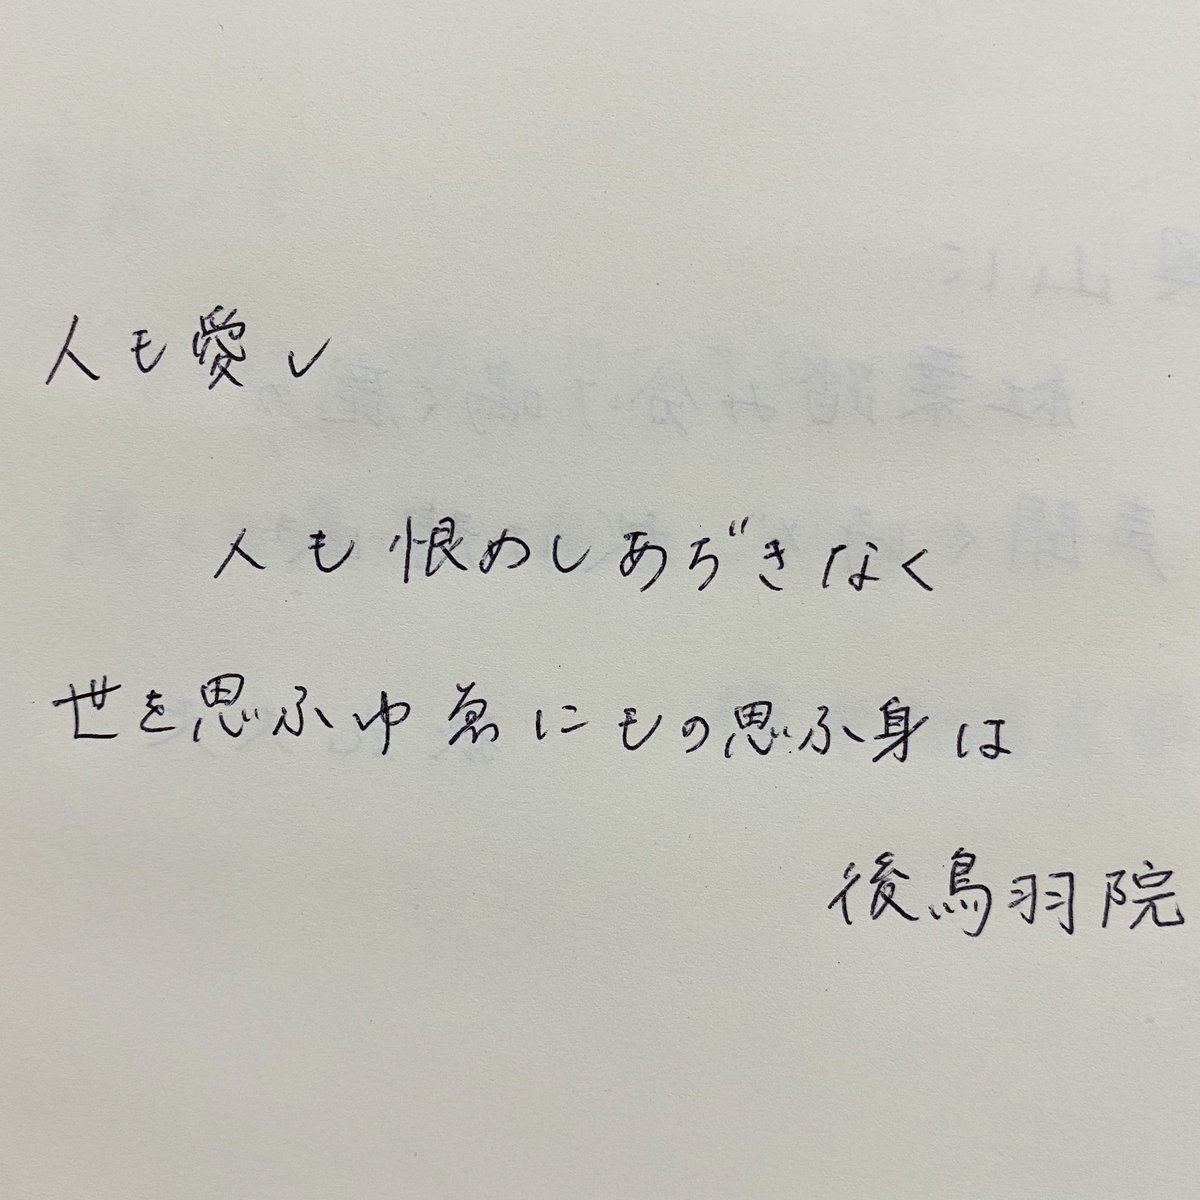 人も愛し
人も恨めしあぢきなく
世を思ふゆゑにもの思ふ身は
後鳥羽院